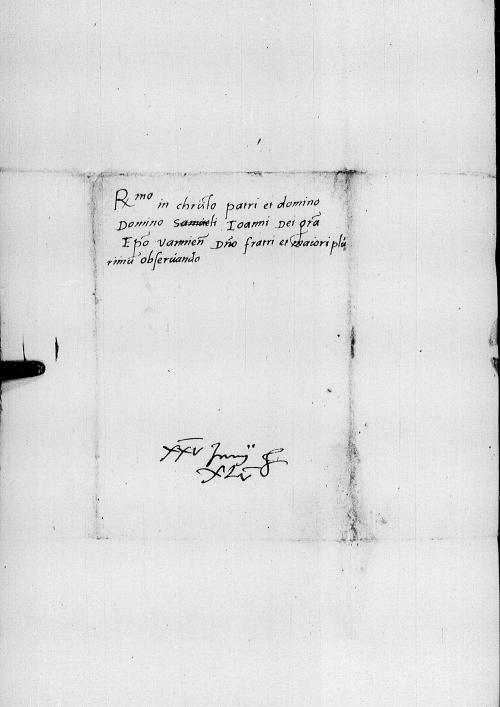 Rmo in christo patri et domino
Domino Samueli Ioanni Dei gra
Epo varmien Dno fratri et maiori plu
rimu observando
XXV Junij
XLV